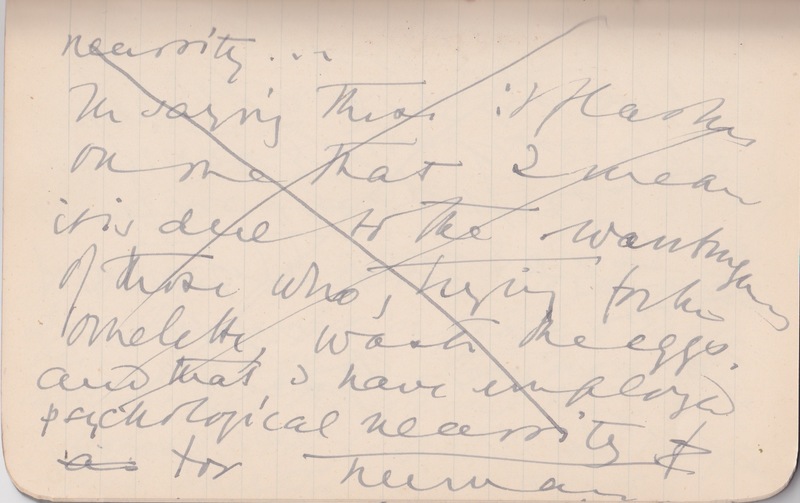 necessity...
In saying this it flashes
on me that I mean
it is due to the wantingness
of those who, trying for the
omelette, waste the eggs.
and that I have employed
psychological necessity &
as for human